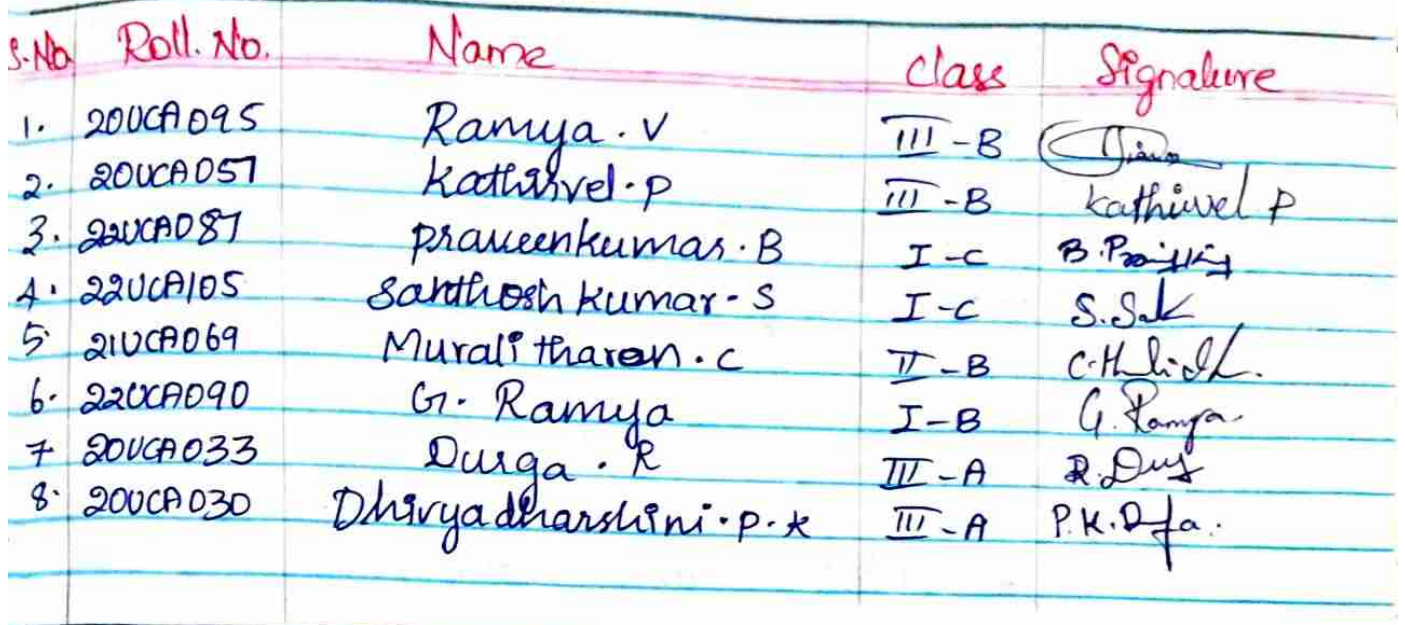 S.No Roll. No. Name Class Signature
1. 20UCA095 Ramya . V III - B
2. 20UCA057 Kathirvel . P III - B Kathirvel P
3. 22UCA087 Praveenkumar . B I - C B.
4. 22UCA105 Santhosh Kumar - S I - C S.
5. 21UCA069 Muralitharan . C II - B C.
6. 22UCA090 G. Ramya I - B G. Ramya.
7 20UCA033 Durga . R III - A R.
8. 20UCA030 Dhivyadharshini . P . K III - A P.K.